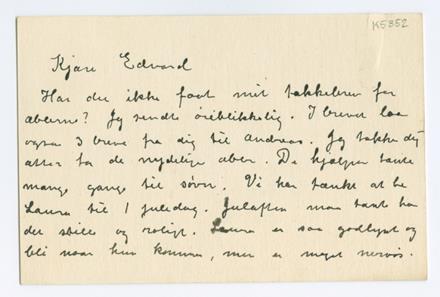 K5352
Kjære Edvard
Har du ikke faat mit takkebrev for
æblerne? Jeg sendte øieblikkelig. I brevet laa
ogsaa 3 breve fra dig til Andreas. Jeg takker dig
atter for de nydelige æbler. De hjælper tante
mange gange til søvn. Vi har tænkt at be
Laura til 1 juledag. Julaften maa tante ha
det stille og roligt. Laura er saa godlynt og
bli naar hun kommer, men er meget nervøs.